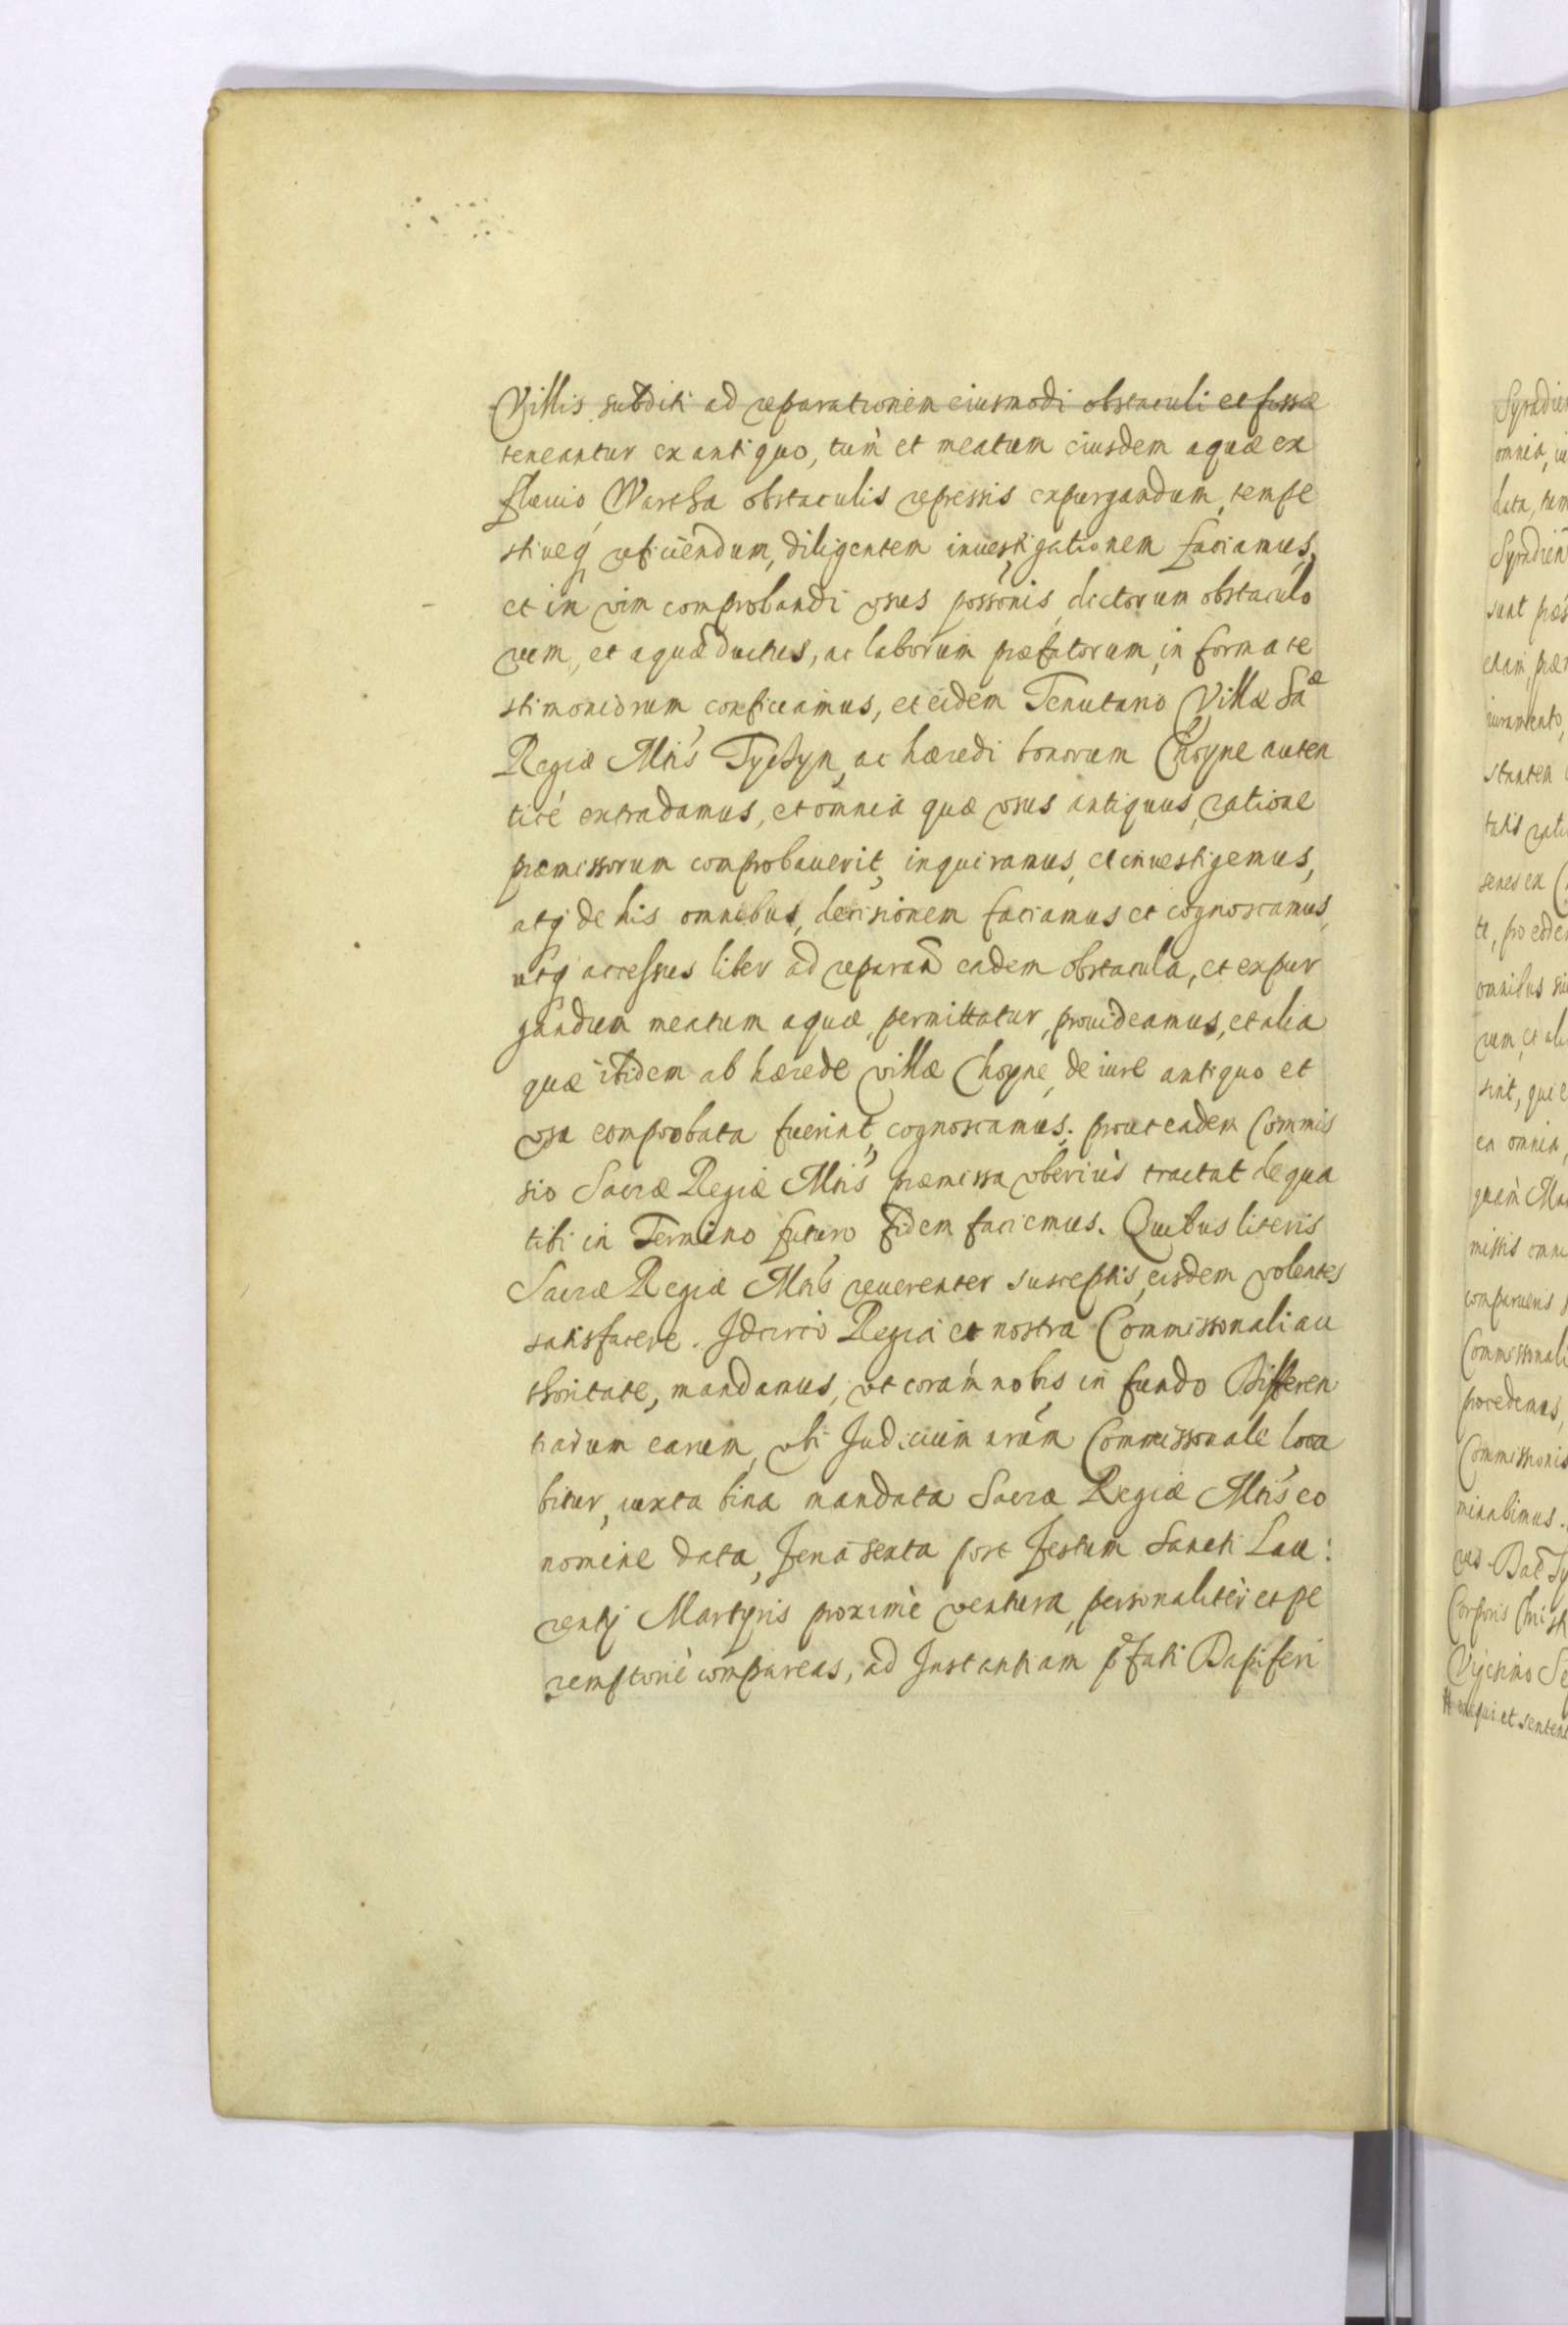 Villis subditi ad reparationem eiusmodi obstaculi et fossæ
teneantur ex antiquo, tum et meatum eiusdem aquæ ex
fluuio Wartha obstaculis repressis expurgandum, tempe
stiueq reficiendum, diligentem inuestigationem faciamus,
et in vim comprobandi usus possonis, dictorum obstaculo
rum, et aquæductus, ac laborum præfatorum, in forma te
stimoniorum conficiamus, et eidem Tenutario Villæ Saæ
Regiæ Mtis Tyczyn, ac hæredi bonorum Choyne auten
ticé extradamus, et omnia quæ usus antiquus, ratione
præmissorum comprobauerit, inquiramus, et inuestigemus,
atq de his omnibus, decisionem faciamus et cognoscamus,
utq accessus liber ad reparan eadem obstacula, et expur
gandum meatum aquæ, permittatur, prouideamus, et alia
quæ ibidem ab hærede villæ Choyne, de iure antiquo et
usu comprobata fuerint, cognoscamus, prout eadem Commis
sio Sacræ Regiæ Mtis præmissa uberiùs tractat de qua
tibi in Termino futuro fidem faciemus. Quibus literis
Sacræ Regiæ Mtis reuerenter susceptis, eisdem volentes
satisfacere. Idcirco Regia et nostra Commissonali au
thoritate, mandamus, ut coram nobis in fundo Differen
tiarum earum, ubi Judicium nrum Commissonale loca
bitur, iuxta bina mandata Sacræ Regiæ Mtis eo
nomine data, feria sexta post festum Sancti Lau:
rentij Martyris proximè ventura, personalitèr et pe
remptoriè compareas, ad Instantiam pfati Dapiferi
Syradien
omnia, iu
data, tum
Syradien
sunt præs
iuramento,
stantem
sint, que
ea omnia,
missis omni
comparuens
Commissonali
procedemus,
Commissionis
minabimus.
Corporis Chri
Vigesimo Se